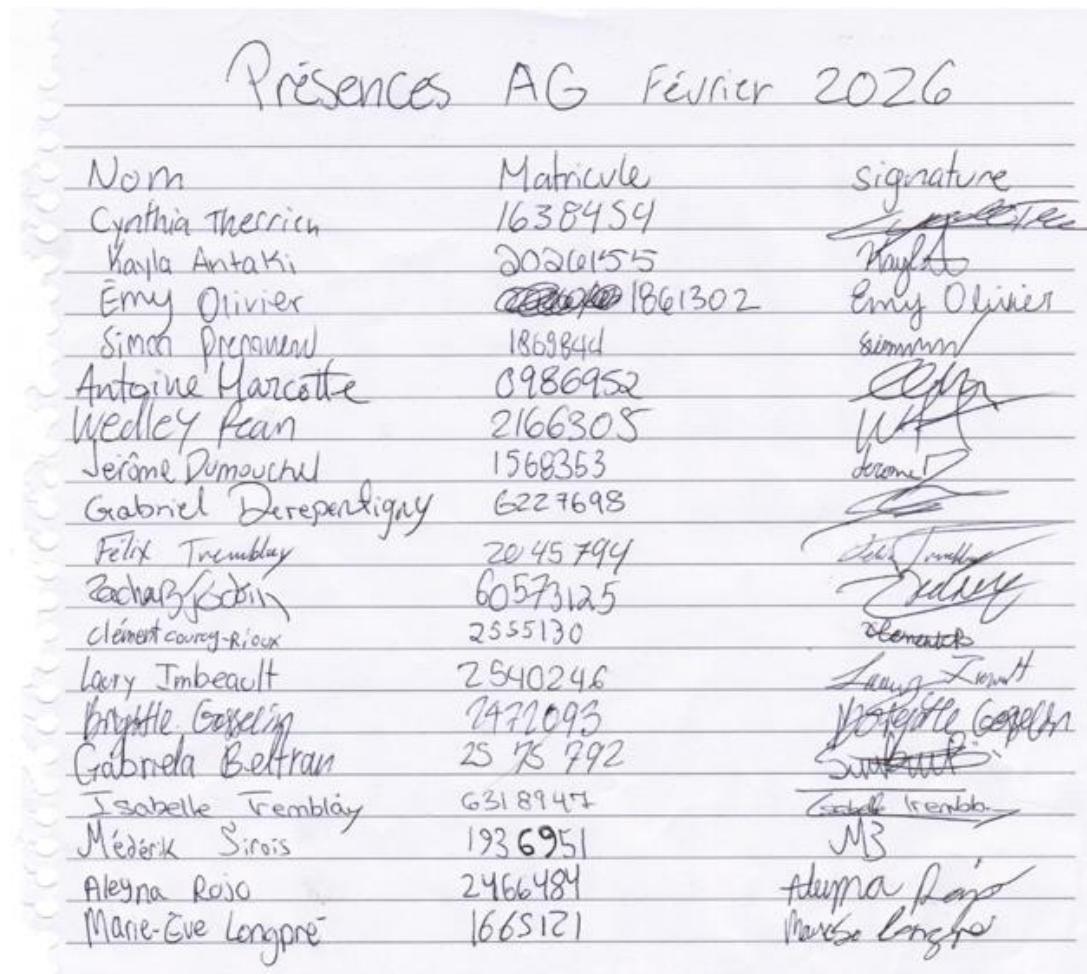 Présences AG Février 2026
Nom Matricule signature
Cynthia Therrien 1638454
Kayla Antaki 2026155 Kayla
Émy Olivier 1861302 Emy Olivier
Simon 1869844
Antoine Marcotte 0986952
Wedley Pean 2166305
Jérôme Dumouchel 1568353 Jerome D
Gabriel Derepentigny 6227698
Félix Tremblay 2045794 Félix Tremblay
Zachary 60573125
Clément Courcy-Rioux 2555130
Laury Imbeault 2540246
Brigitte Gosselin 2472093
Gabriela Beltran 25 75 792
Isabelle Tremblay 6318947 Isabelle Trembla
Médérik Sirois 1936951
Aleyna Rojo 2466484 Aleyna Rojo
Marie-Eve Longpré 1665121 Longpré